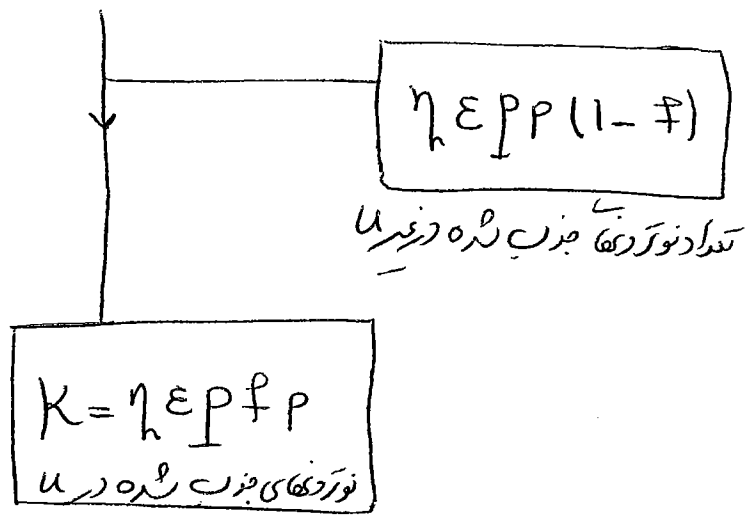 η ε p P (1 - f)
تعداد نوترونهای جذب شده در غیر u
K = η ε p f P
نوترونهای جذب شده در u